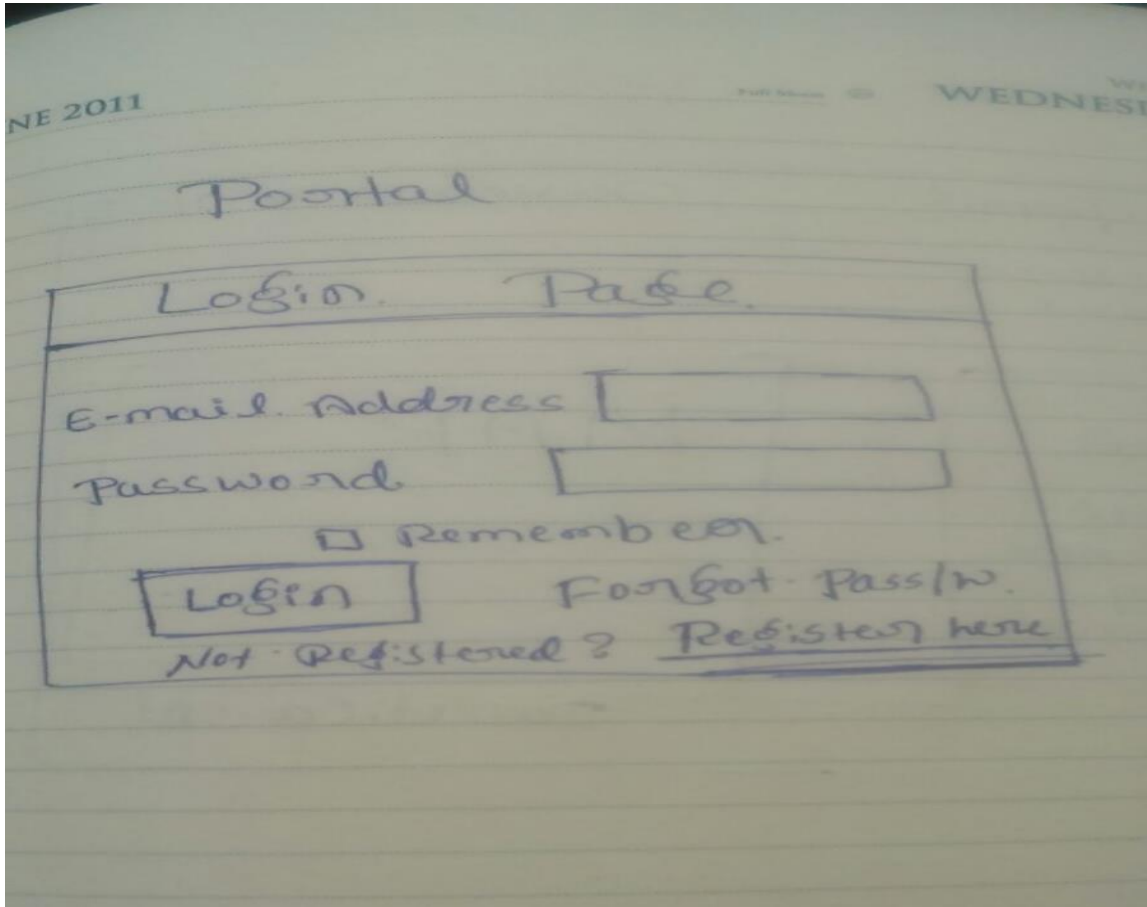 NE 2011
WEDNESD
Portal
Login Page
E-mail Address
Password
Remember
Login Forgot Pass/w.
Not Registered? Register here